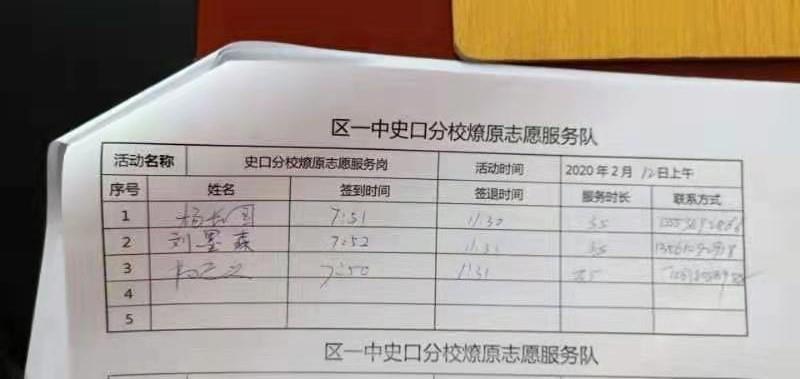 区一中史口分校燎原志愿服务队
活动名称 史口分校燎原志愿服务岗 活动时间 2020年2月12日上午
序号 姓名 签到时间 签退时间 服务时长 联系方式
1 7:51 11:30 3.5
2 刘墨森 7:52 11:31 3.5
3 7:50 11:31
4
5
区一中史口分校燎原志愿服务队